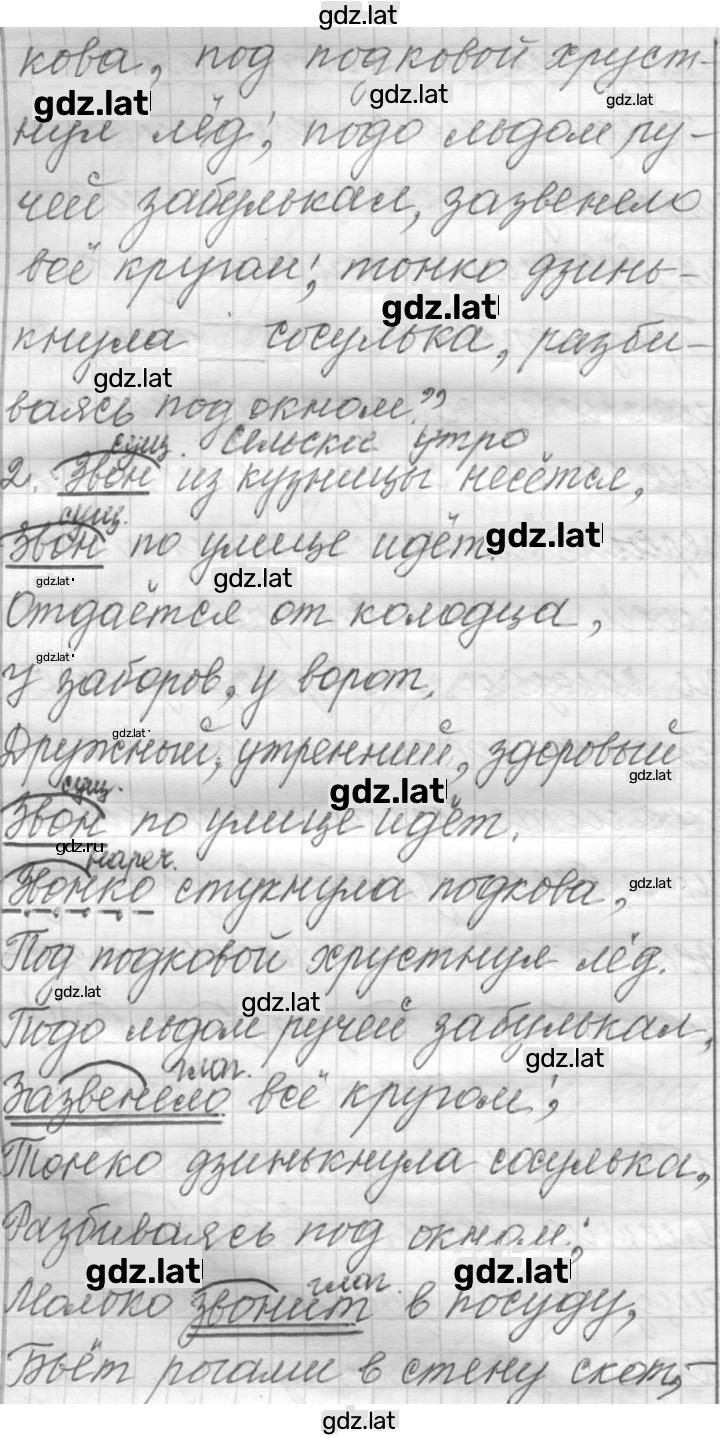 gdz.lat
кова, под подковой хруст-
gdz.lat gdz.lat gdz.lat
нул лёд; подо льдом ру-
чей забулькал, зазвенело
всё кругом; тонко дзинь-
gdz.lat
кнула сосулька, разби-
gdz.lat
ваясь под окном."
сущ. Сельское утро
2. Звон из кузницы несётся,
сущ.
Звон по улице идёт. gdz.lat
gdz.lat gdz.lat
Отдаётся от колодца,
gdz.lat
У заборов, у ворот.
gdz.lat
Дружный, утренний, здоровый
gdz.lat
сущ. gdz.lat
Звон по улице идёт.
gdz.ru
нареч.
Звонко стукнула подкова,
gdz.lat
Под подковой хрустнул лёд.
gdz.lat gdz.lat
Подо льдом ручей забулькал,
gdz.lat
глаг.
Зазвенело всё кругом;
Тонко дзинькнула сосулька,
Разбиваясь под окном;
gdz.lat gdz.lat
глаг.
Молоко звонит в посуду,
Бьёт рогами в стену скот,-
gdz.lat